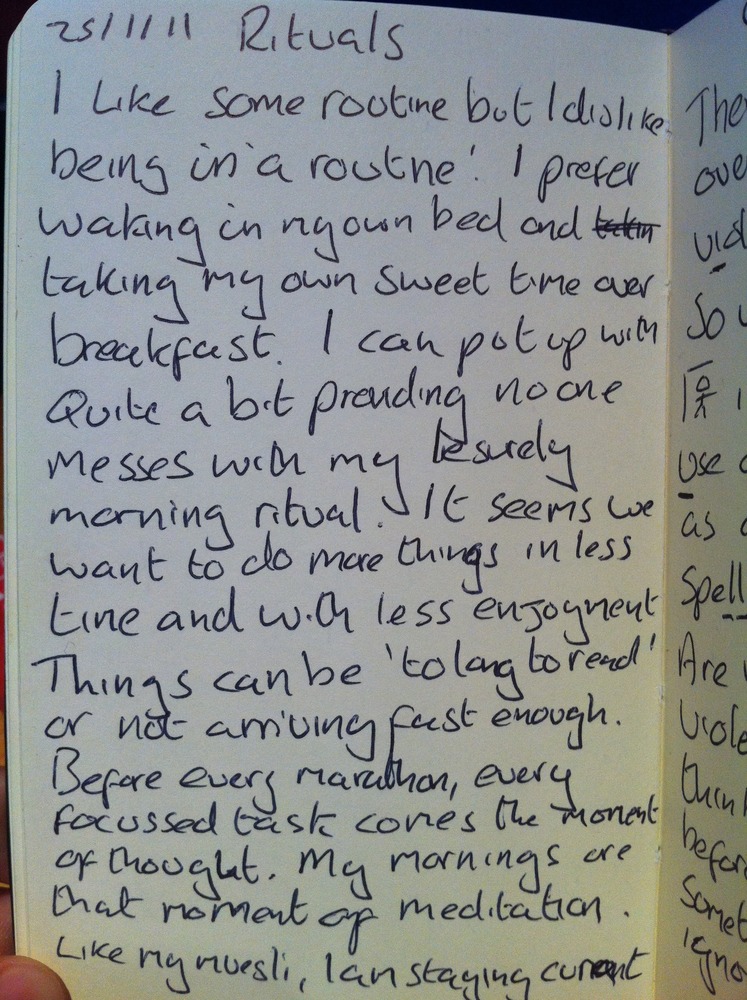 25/11/11 Rituals
I Like some routine but I dislike
being 'in a routine'. I prefer
waking in my own bed and
taking my own sweet time over
breakfast. I can put up with
Quite a bit providing no one
messes with my lesurely
morning ritual. It seems we
want to do more things in less
time and with less enjoyment
Things can be 'to long to read'
or not arriving fast enough.
Before every marathon, every
focussed task comes the moment
of thought. My mornings are
that moment of meditation.
Like my muesli, I am staying current
The
over
So
use
as
Spell
Are
viole
think
before
Somet
igno